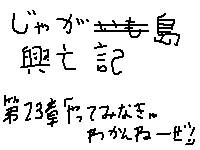 じゃがいも島
興亡記
第23章「やってみなきゃ
わかんねーぜ!!」